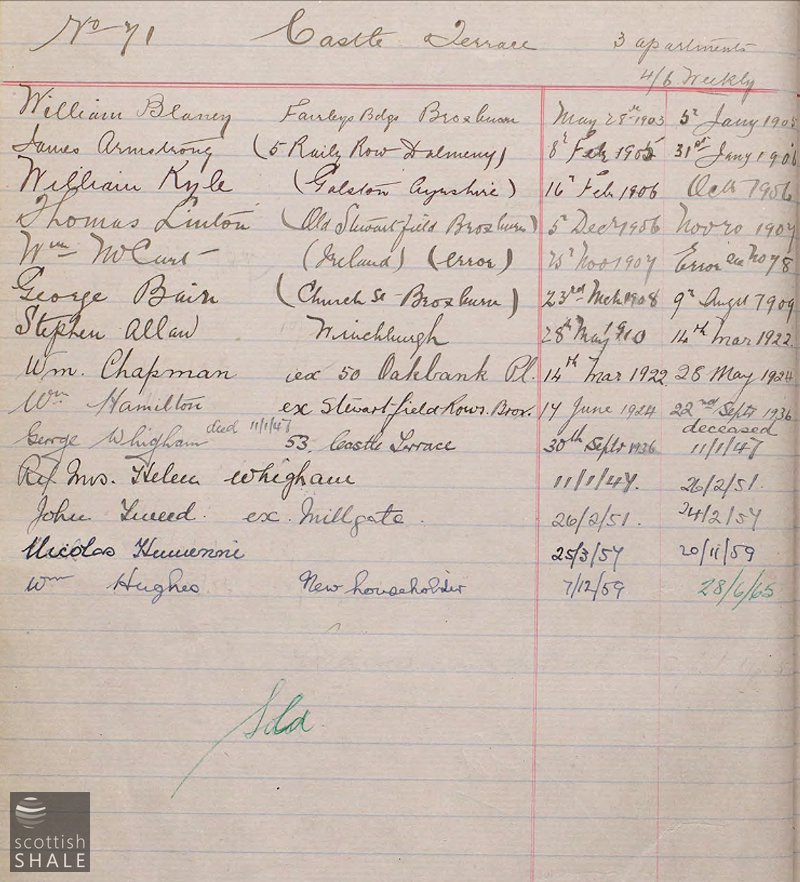 No 71 Castle Terrace 3 apartments
4/6 Weekly
William Blaney Fairleys Bdgs Broxburn May 28th 1903 5th Jany 1905
James Armstrong (5 Raily Row Dalmeny) 8th Feb 1905 31st Jany 1906
William Kyle (Galston Ayrshire) 16th Feb 1906 Octr 1906
Thomas Linton (Old Stewartfield Broxburn) 5th Decr 1906 Nov 20 1907
Wm McCurt (Ireland) (error) 25th Nov 1907 Error see No 78
George Bain (Church St Broxburn) 23rd Mch 1908 9th Augst 1909
Stephen Allan Winchburgh 28th May 1910 14th Mar 1922.
Wm. Chapman ex 50 Oakbank Pl. 14th Mar 1922 28 May 1924
Wm Hamilton ex Stewartfield Rows. Brox. 17 June 1924 22nd Septr 1936
George Whigham died 11/1/47 53, Castle Terrace 30th Septr 1936 deceased 11/1/47
Mrs. Helen Whigham 11/1/47. 26/2/51.
John Tweed. ex. Millgate. 26/2/51. 24/2/57
Nicolas 25/3/57 20/11/59
Wm Hughes New householder 7/12/59 28/6/65
Sold
scottish
SHALE